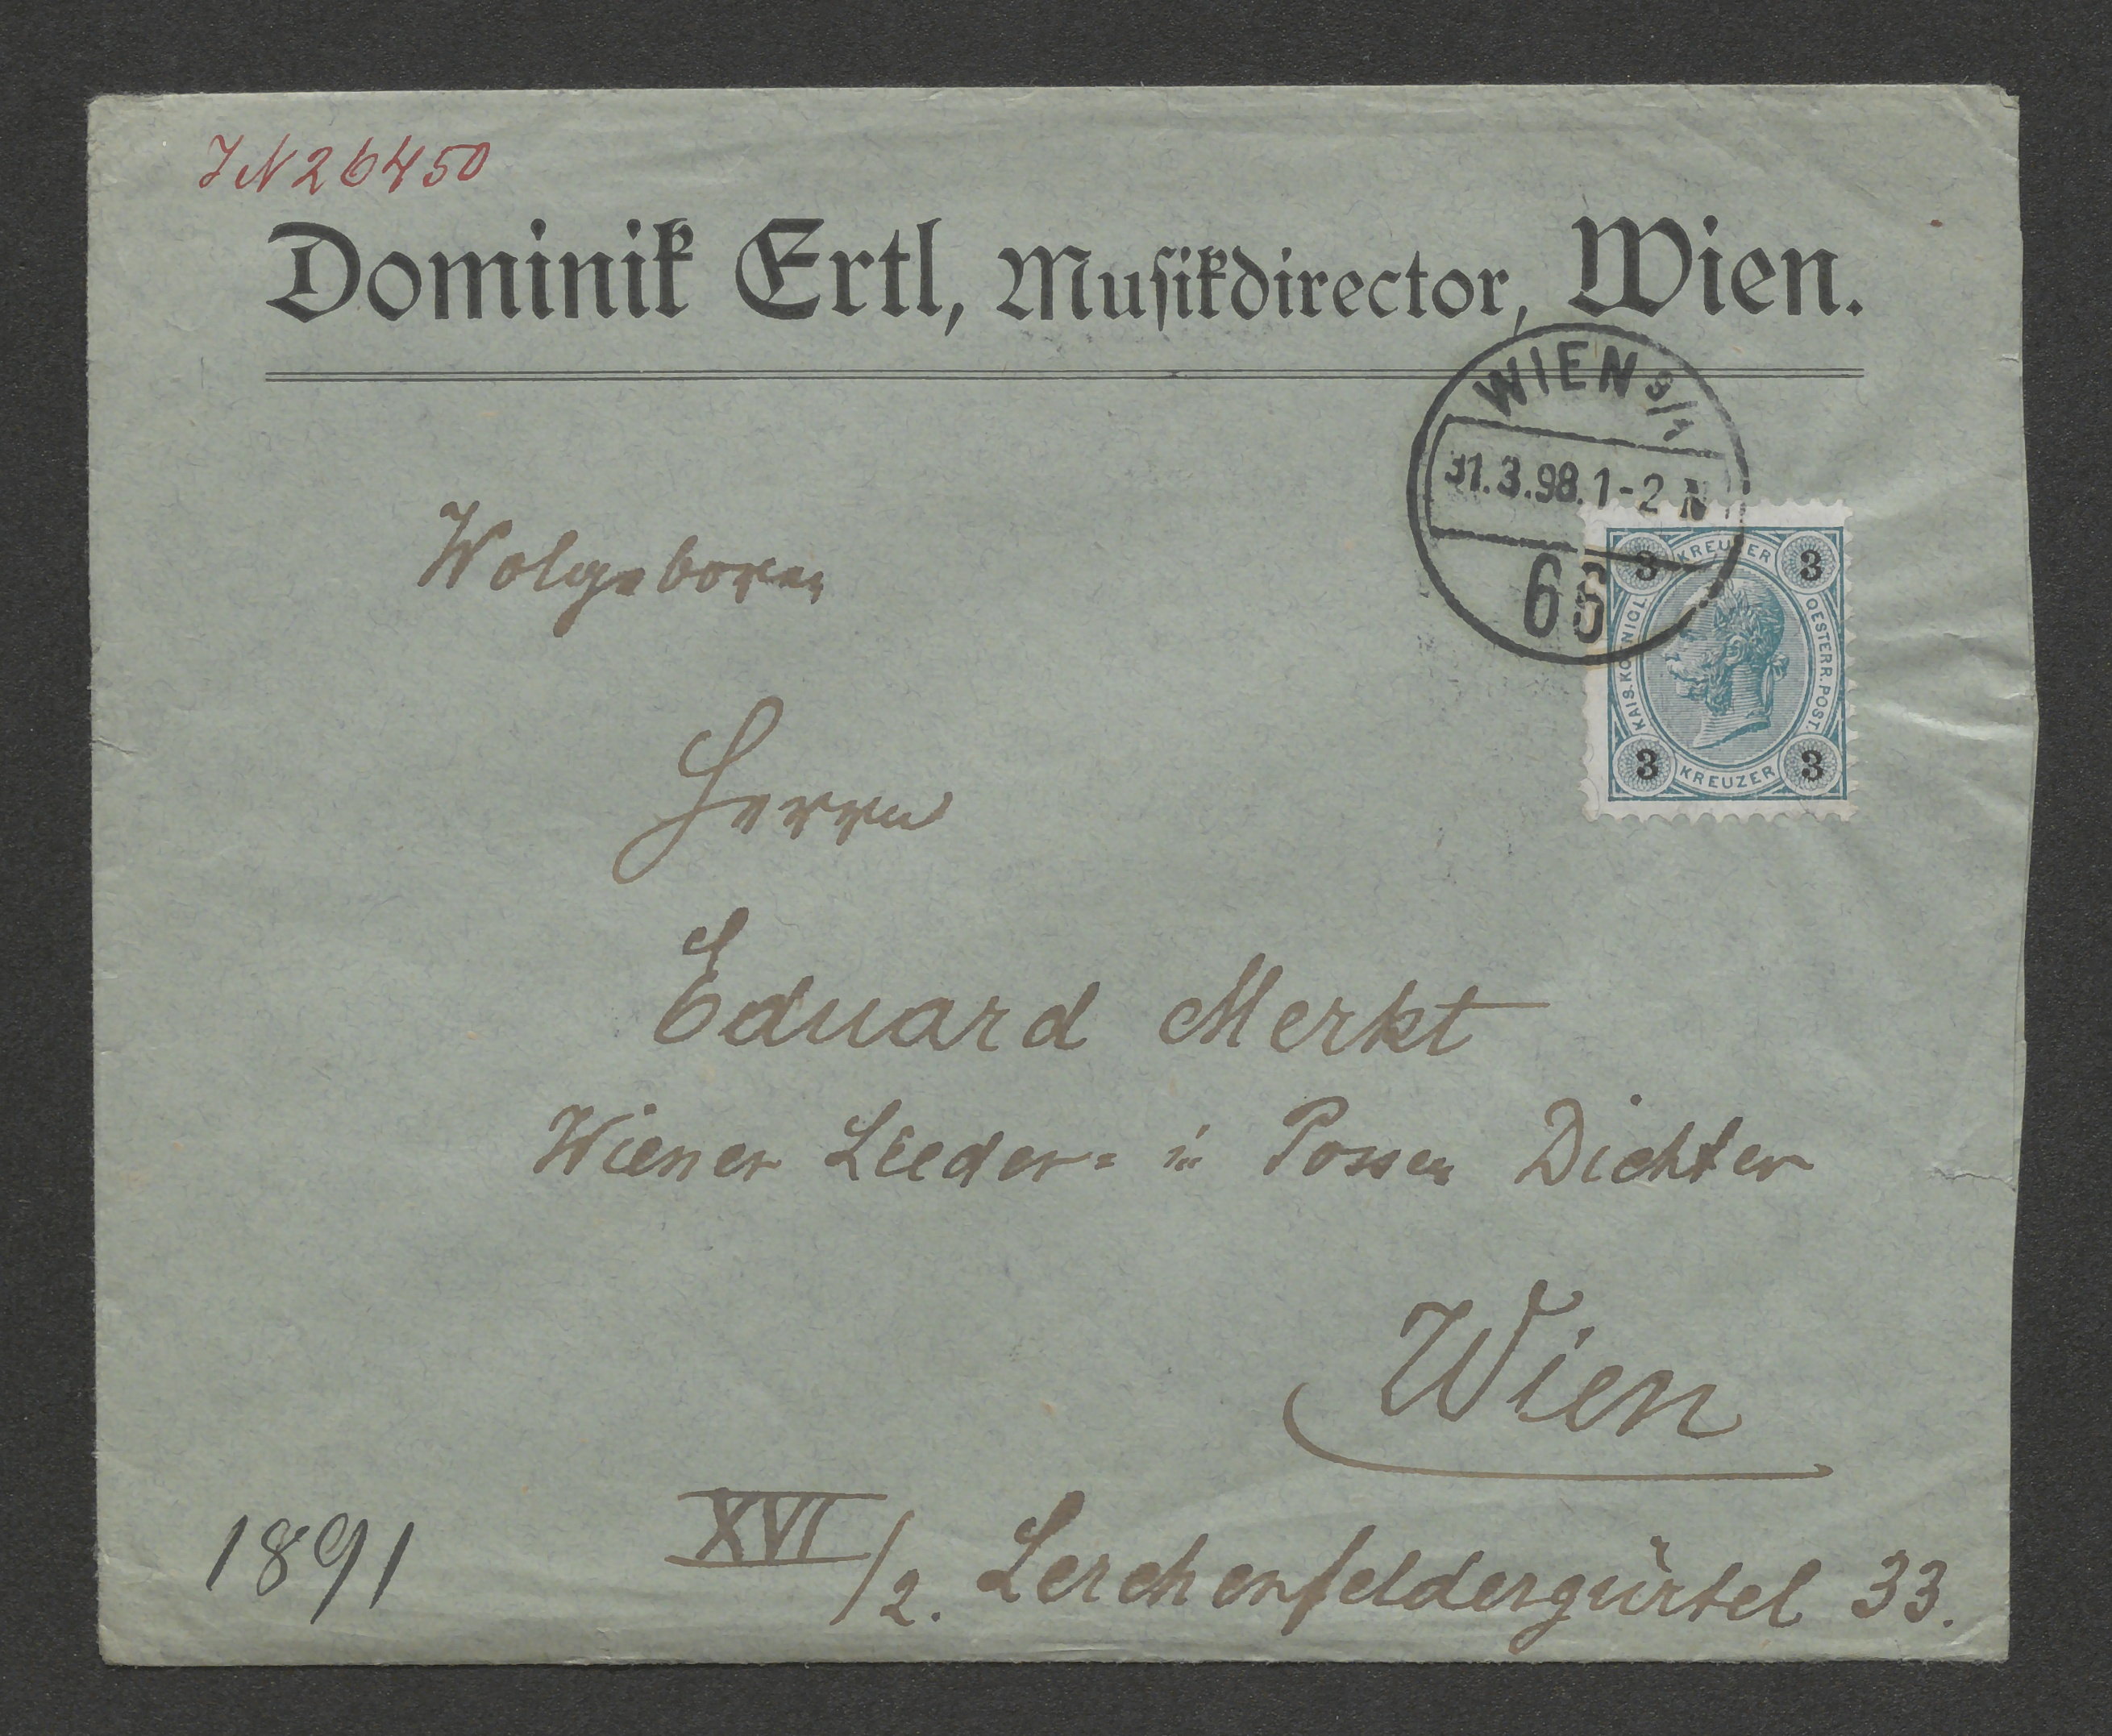 IN 26450
Dominik Ertl, Musikdirector, Wien.
WIEN 9/1
31.3.98.1-2 N
66
3 KREUZER 3
KAIS. KÖNIGL. OESTERR. POST.
3 KREUZER 3
Wolgeboren
Herrn
Eduard Merkt
Wiener Lieder= u Possen Dichter
Wien
XVI/2. Lerchenfeldergürtel 33.
1891